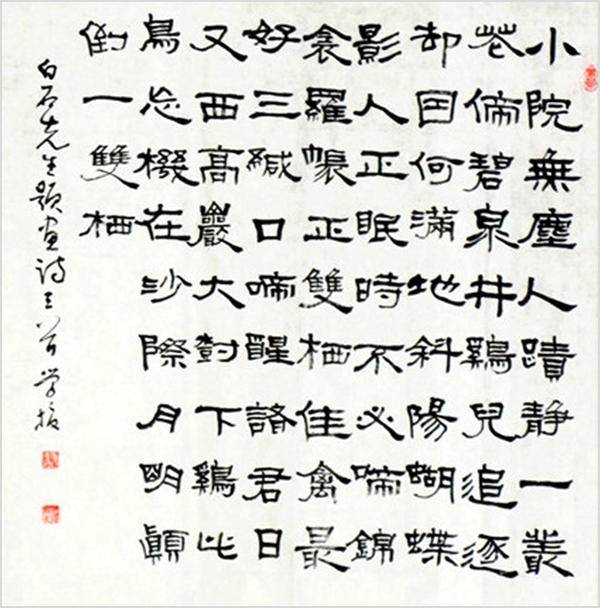 小院無塵人蹟静一叢
花傍碧泉井鷄兒追逐
却因何滿地斜陽蝴蝶
影人正眠時不必啼錦
衾羅帳正雙栖佳禽最
好三緘口啼醒諸君日
又西高巖大對下鷄比
鳥忘機在沙際月明顛
倒一雙栖
白石先生題画詩三首学振